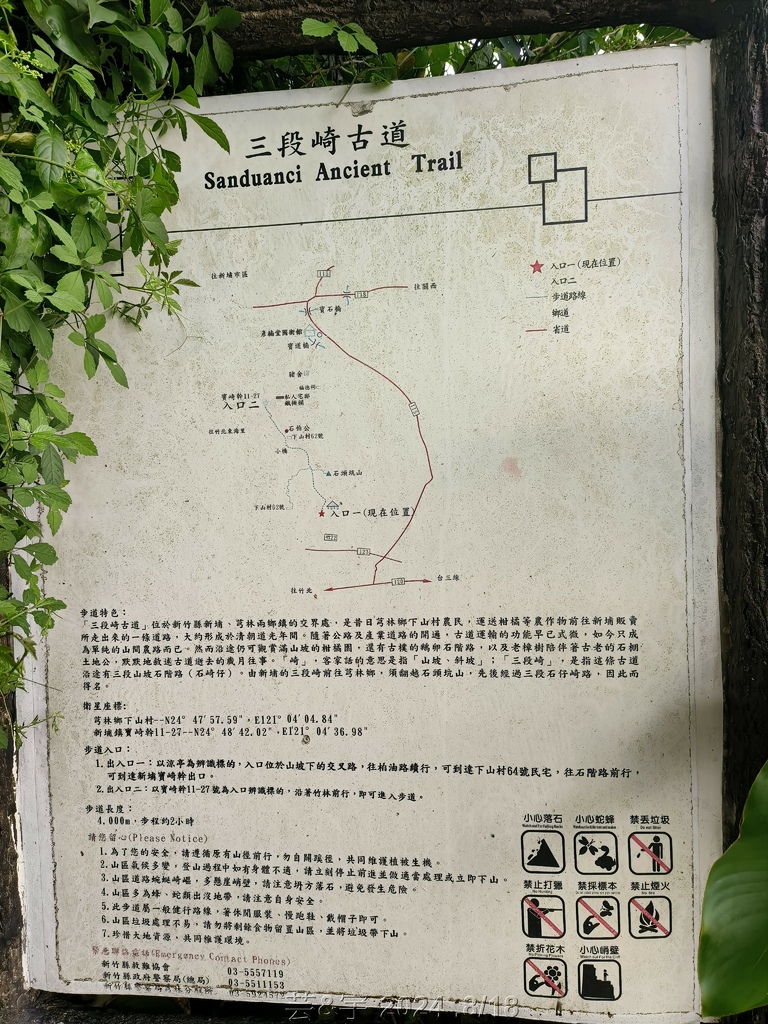 三段崎古道
Sanduanci Ancient Trail
入口一(現在位置)
入口二
步道路線
鄉道
省道
往新埔市區
往關西
寶石橋
寶道橋
豬舍
私人宅邸
寶崎幹11-27
入口二
石伯公
下山村62號
小橋
石頭坑山
下山村63號
入口一(現在位置)
往竹北
台三線
步道特色:
「三段崎古道」位於新竹縣新埔、芎林兩鄉鎮的交界處,是昔日芎林鄉下山村農民,運送柑橘等農作物前往新埔販賣
所走出來的一條道路,大約形成於清朝道光年間。隨著公路及產業道路的開通,古道運輸的功能早已式微,如今只成
為單純的山間農路而已。然而沿途仍可觀賞滿山坡的柑橘園,還有古樸的鵝卵石階路,以及老樟樹陪伴著古老的石棚
土地公,默默地敘述古道逝去的歲月往事。「崎」,客家話的意思是指「山坡、斜坡」;「三段崎」,是指這條古道
沿途有三段山坡石階路(石崎仔)。由新埔的三段崎前往芎林鄉,須翻越石頭坑山,先後經過三段石仔崎路,因此而
得名。
衛星座標:
芎林鄉下山村--N24° 47′57.59″,E121° 04′04.84″
新埔鎮寶崎幹11-27--N24° 48′42.02″,E121° 04′36.98″
步道入口:
1.出入口一:以涼亭為辨識標的,入口位於山坡下的交叉路,往柏油路續行,可到達下山村64號民宅,往石階路前行,
可到達新埔寶崎幹出口。
2.出入口二:以寶崎幹11-27號為入口辨識標的,沿著竹林前行,即可進入步道。
步道長度:
4.000m,步程約2小時
請您留心(Please Notice)
1.為了您的安全,請遵循原有山徑前行,勿自闢蹊徑,共同維護植被生機。
2.山區氣候多變,登山過程中如有身體不適,請立刻停止前進並做適當處理或立即下山。
3.山區道路蜿蜒崎嶇,多懸崖峭壁,請注意坍方落石,避免發生危險。
4.山區多為蜂、蛇類出沒地帶,請注意自身安全。
5.此步道屬一般健行路線,著休閒服裝、慢跑鞋、戴帽子即可。
6.山區垃圾處理不易,請勿將剩餘食物留置山區,並將垃圾帶下山。
7.珍惜大地資源,共同維護環境。
緊急聯絡電話(Emergency Contact Phones)
新竹縣救難協會 03-5557119
新竹縣政府警察局(總局) 03-5511153
小心落石 小心蛇蜂 禁丟垃圾
禁止打獵 禁採標本 禁止煙火
禁折花木 小心峭壁
芸&宇 2024 8/18